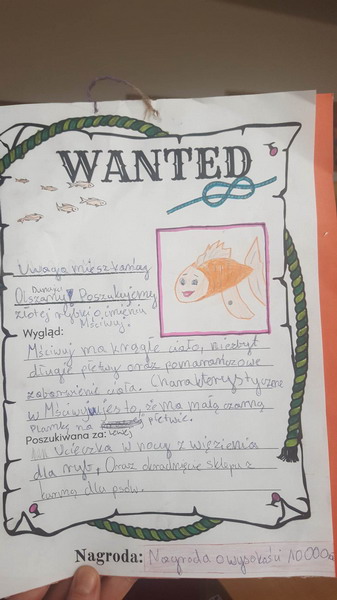 WANTED
Uwaga mieszkańcy
Olszanny Poszukujemy
złotej rybki o imieniu
Mściwuj.
Wygląd:
Mściwuj ma krągłe ciało, niezbyt
długie płetwy oraz pomarańczowe
zabarwienie ciała. Charakterystyczne
w Mściwuju jest to, że ma małą czarną
plamkę na lewej płetwie.
Poszukiwana za:
Ucieczka w nocy z więzienia
dla ryb, Oraz okradnięcie sklepu z
karmą dla psów.
Nagroda: Nagroda o wysokości 10 000 zł